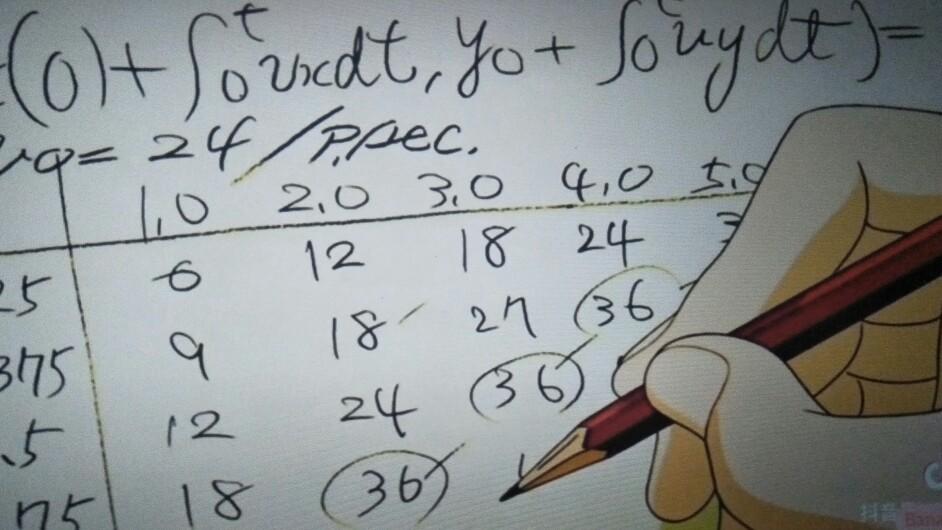 (0)+∫0^t vxdt, y0+∫0^t vydt)=
= 24/P.sec.
1.0 2.0 3.0 4.0 5.0
25 6 12 18 24
375 9 18 27 36
.5 12 24 36
75 18 36
抖音